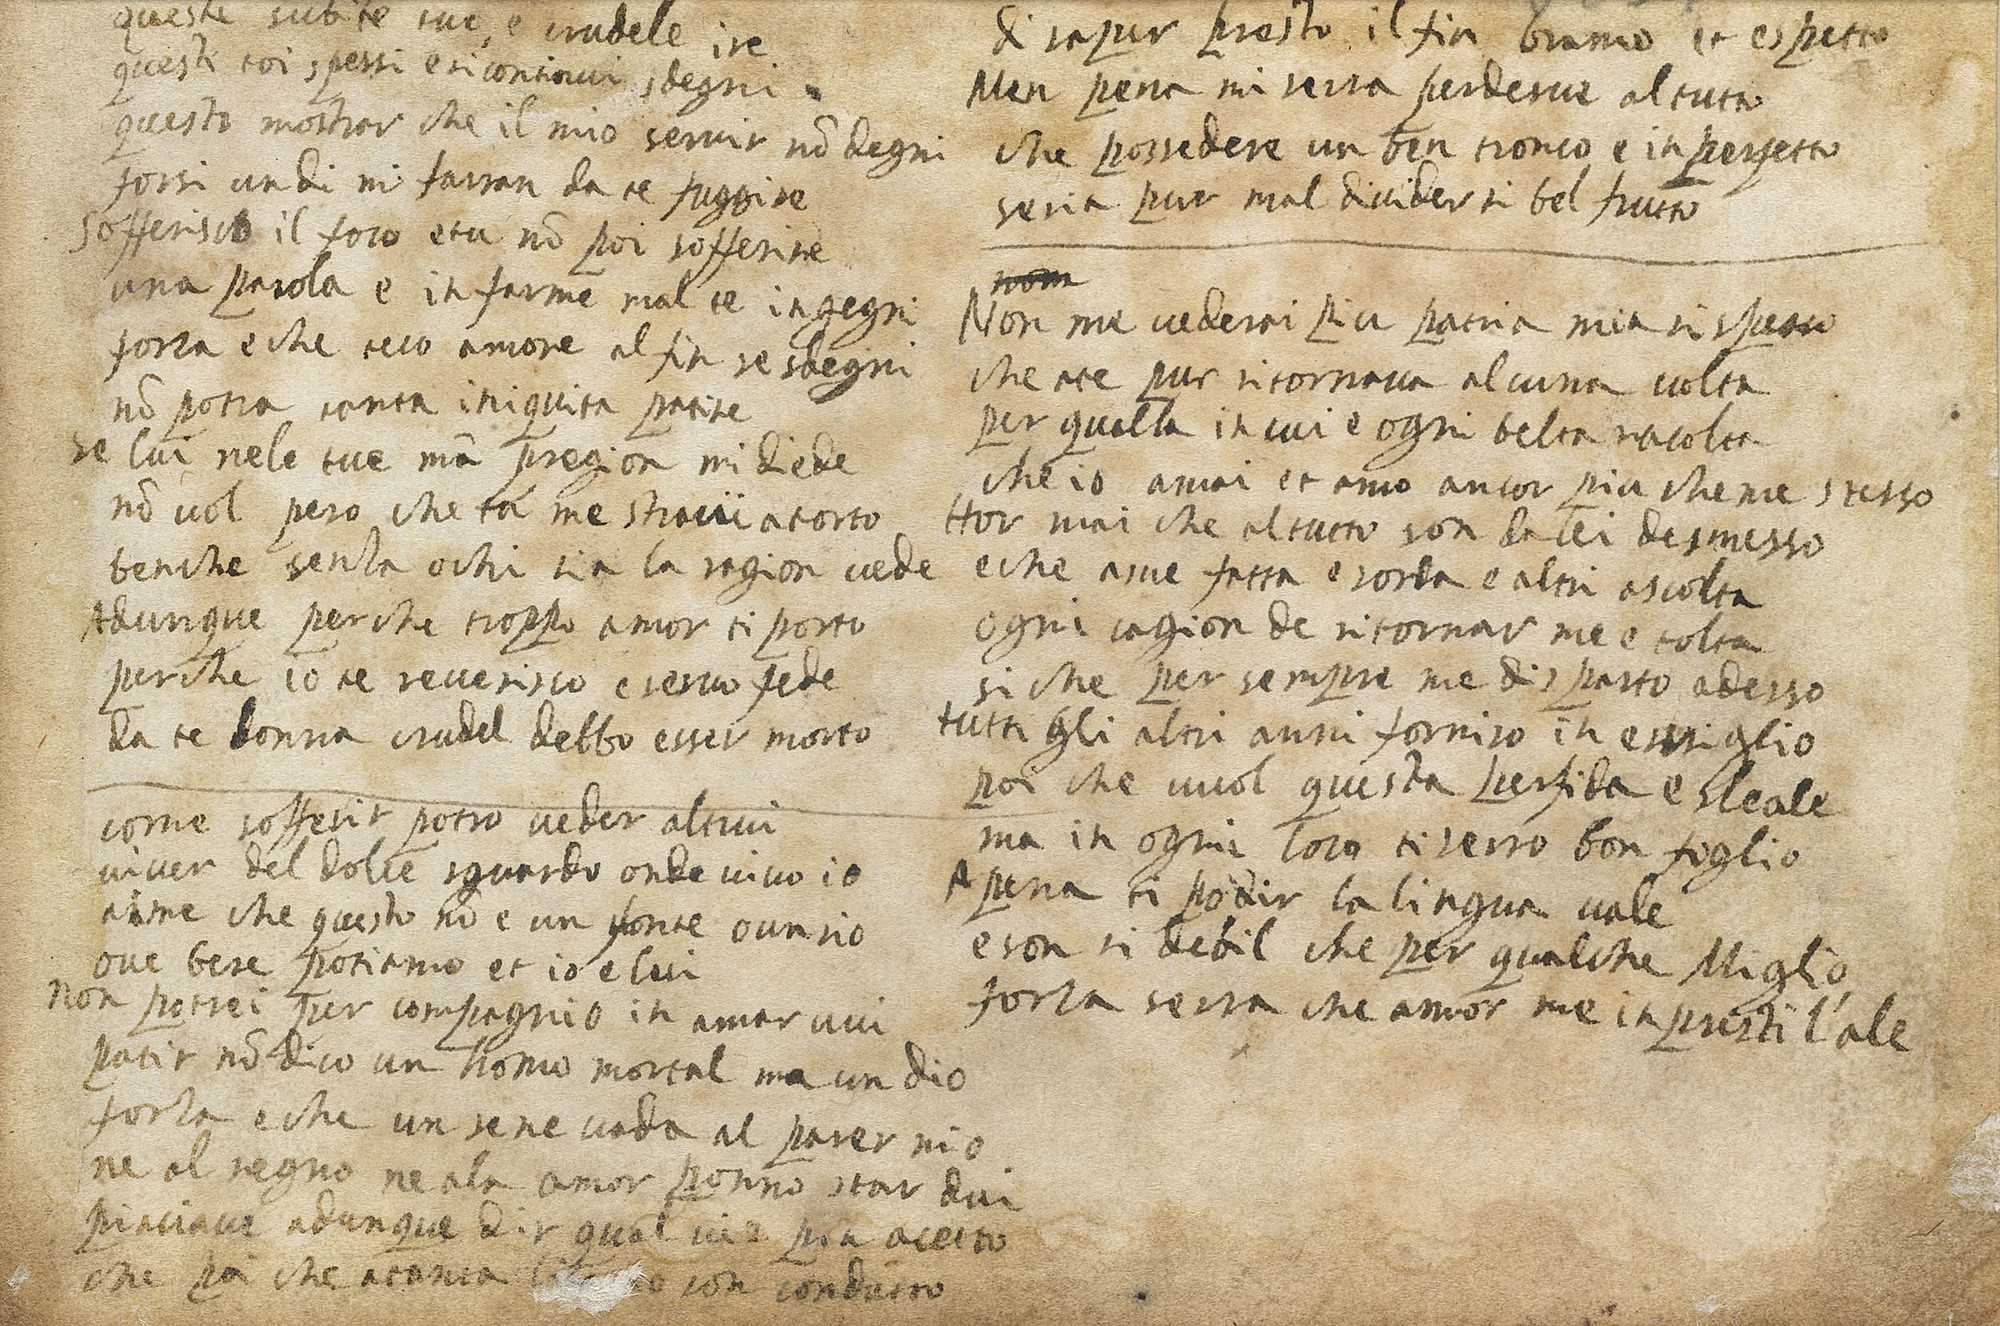 queste subite tue, e crudele ire
questi toi spessi e si continui sdegni.
questo mostrar che il mio servir nō degni
forsi un di mi farran da te fuggire
Sofferisco il foco e tu nō poi sofferire
una parola e infarme mal te ingegni
forza e che teco amore al fin se sdegni
nō potra tanta iniquita patire
se lui nele tue mā pregion mi diede
nō vol pero che tu me stracii a torto
benche senza ochi sia la ragion vede
Adunque perche troppo amor ti porto
perche io te reverisco e servo fede
da te donna crudel debbo esser morto
come sofferir potro veder altrui
viver del dolce sguardo onde vivo io
aime che questo nō e un fonte o un rio
ove bere potiamo et io e lui
Non potrei per compagnio in amar vui
patir nō dico un homo mortal ma un dio
forza e che un sene vada al parer mio
ne al regno ne ala amor ponno star dui
piaciave adunque dir qual vi e piu acetto
che poi che a tanta son condutto
di saper presto il fin bramo et espetto
Men pena mi serra perderve al tutto
che possedere un ben tronco e inperfetto
seria pur mal divider si bel frutto
nom
Non me vederai piu patria mia si spesso
che a te pur ritornava alcuna volta
per quella in cui e ogni belta racolta
che io amai et amo ancor piu che me stesso
Hor mai che al tutto son da lei desmesso
e che a me fatta e sorda e altri ascolta
ogni cagion de ritornar me e tolta
si che per sempre me disparto adesso
tutti gli altri anni forniro in essiglio
poi che vuol questa perfida e sleale
ma in ogni loco ti serro bon foglio
A pena ti po dir la lingua vale
e son si debil che per qualche Miglio
forza serra che amor me inpresti l'ale